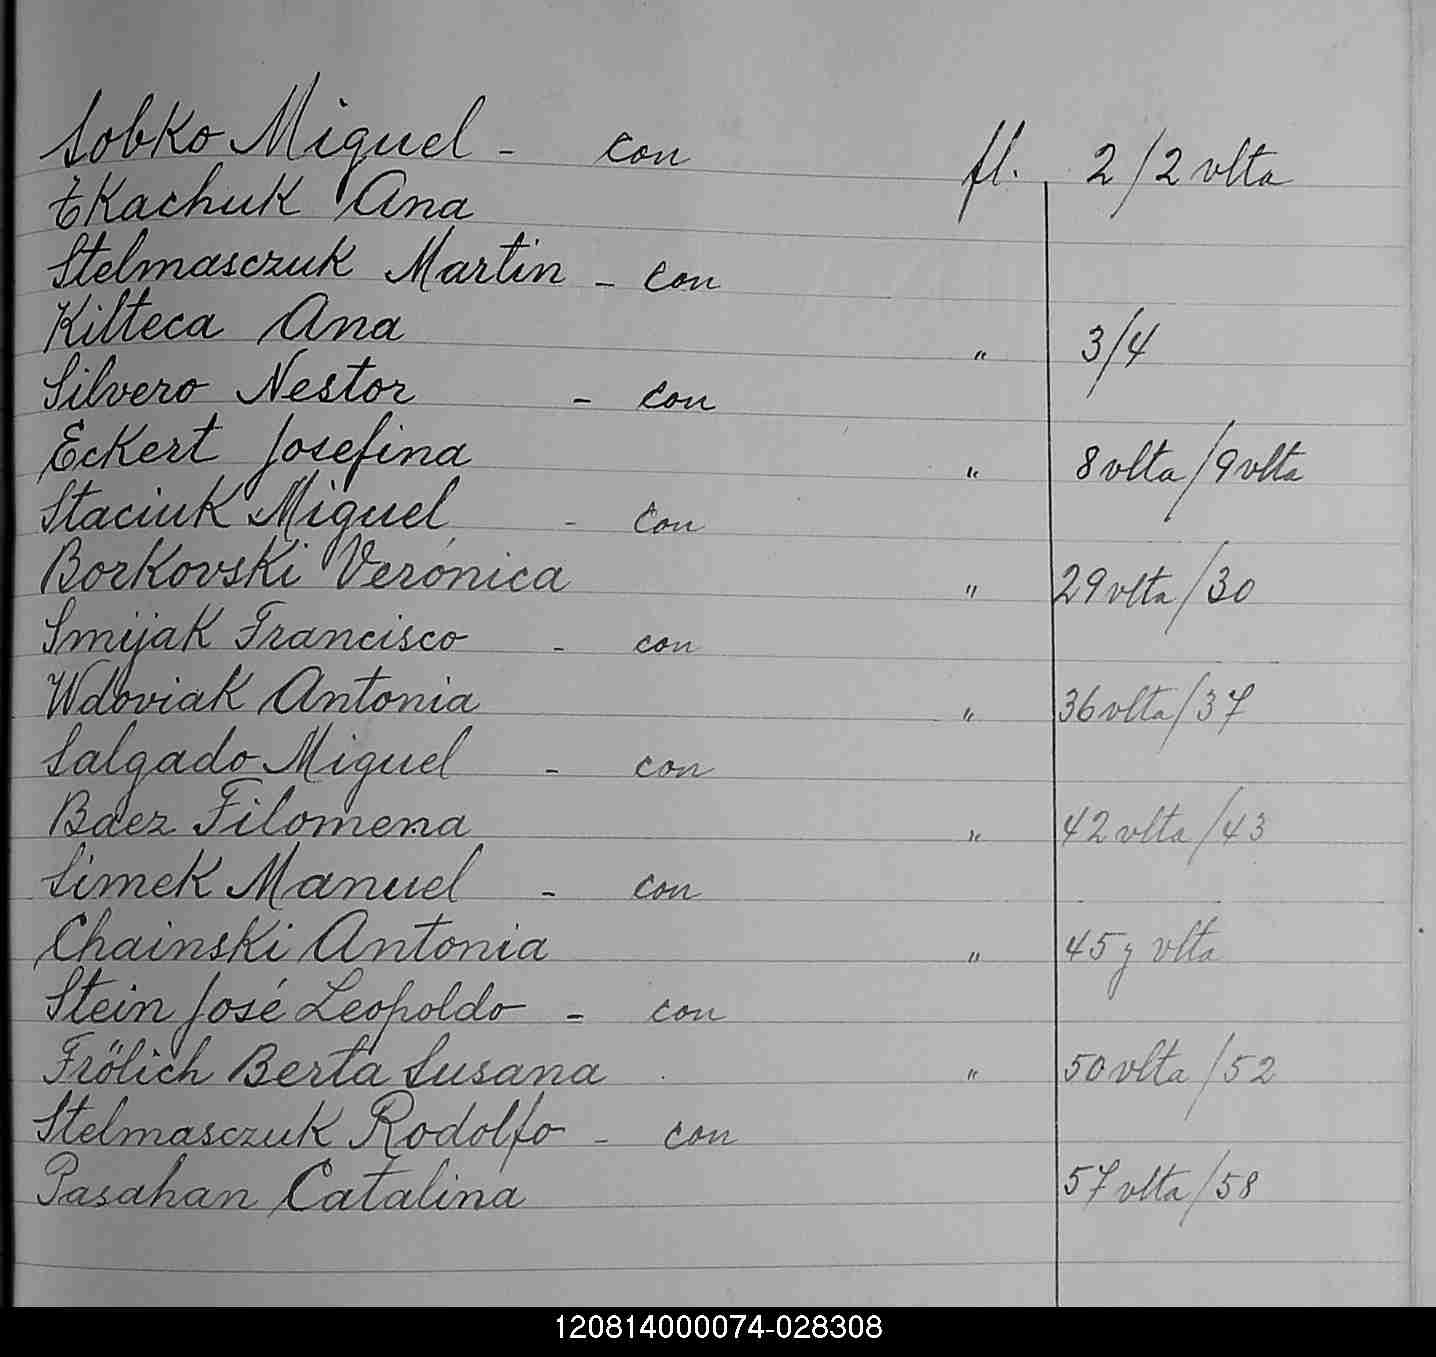 Sobko Miguel - con fl. 2/2 vlta
Tkachuk Ana
Stelmasczuk Martin - con
Kilteca Ana " 3/4
Silvero Nestor - con
Eckert Josefina " 8 vlta/9 vlta
Staciuk Miguel - con
Borkovski Verónica " 29 vlta/30
Smijak Francisco - con
Wdoviak Antonia " 36 vlta/37
Salgado Miguel - con
Baez Filomena " 42 vlta/43
Simek Manuel - con
Chainski Antonia " 45 y vlta
Stein José Leopoldo - con
Frölich Berta Susana " 50 vlta/52
Stelmasczuk Rodolfo - con
Pasahan Catalina 57 vlta/58
120814000074-028308